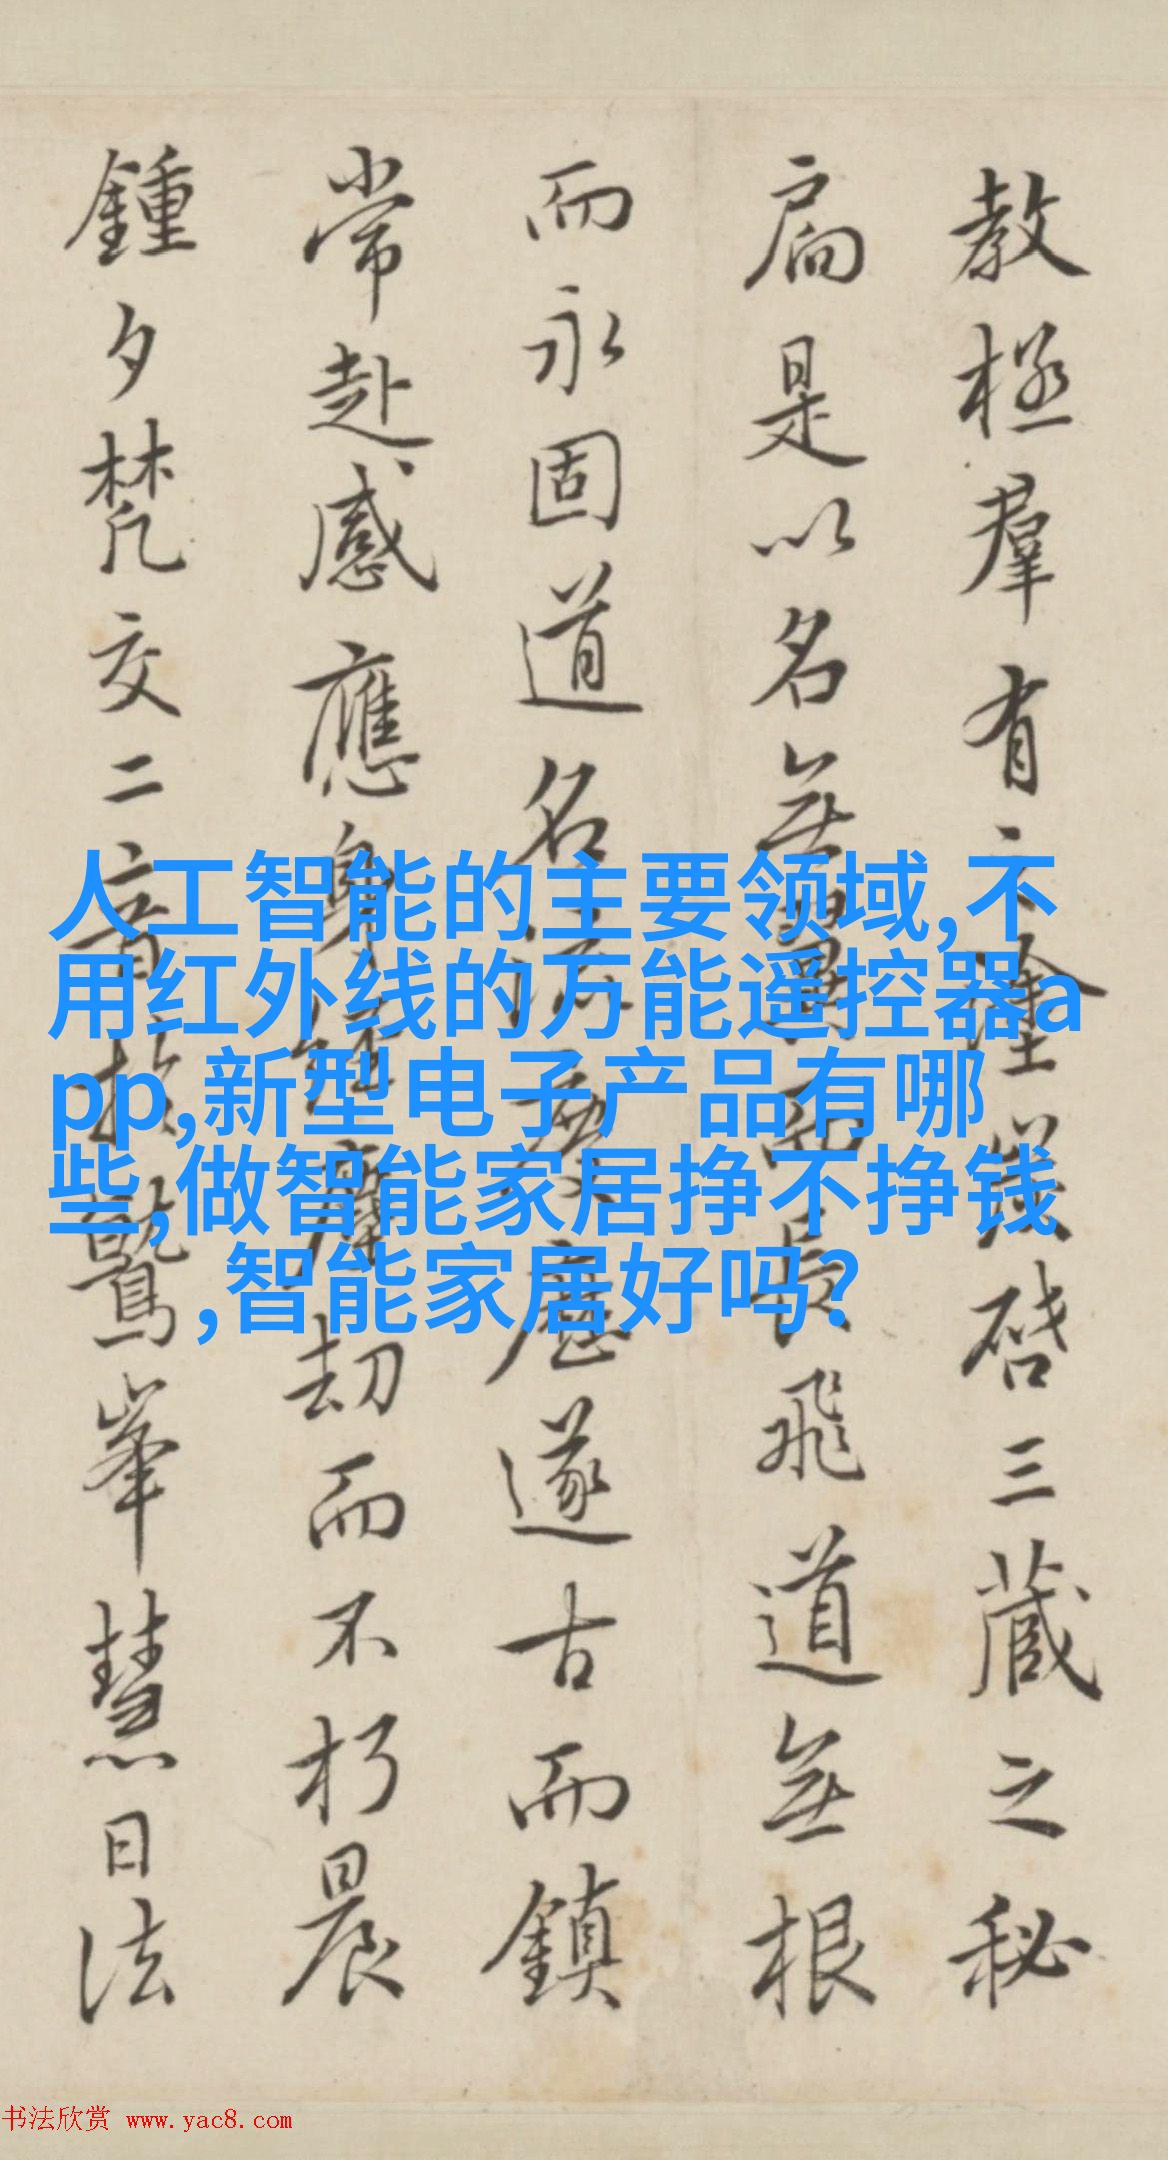 教極羣有之塗義啓三藏之秘
扃是以名無翼而長飛道無根
而永固道名流慶歷遂古而鎮
常赴感應身經塵劫而不朽晨
鍾夕梵交二音於鷲峯慧日法
人工智能的主要领域,不
用红外线的万能遥控器a
pp,新型电子产品有哪
些,做智能家居挣不挣钱
,智能家居好吗?
书法欣赏 www.yac8.com